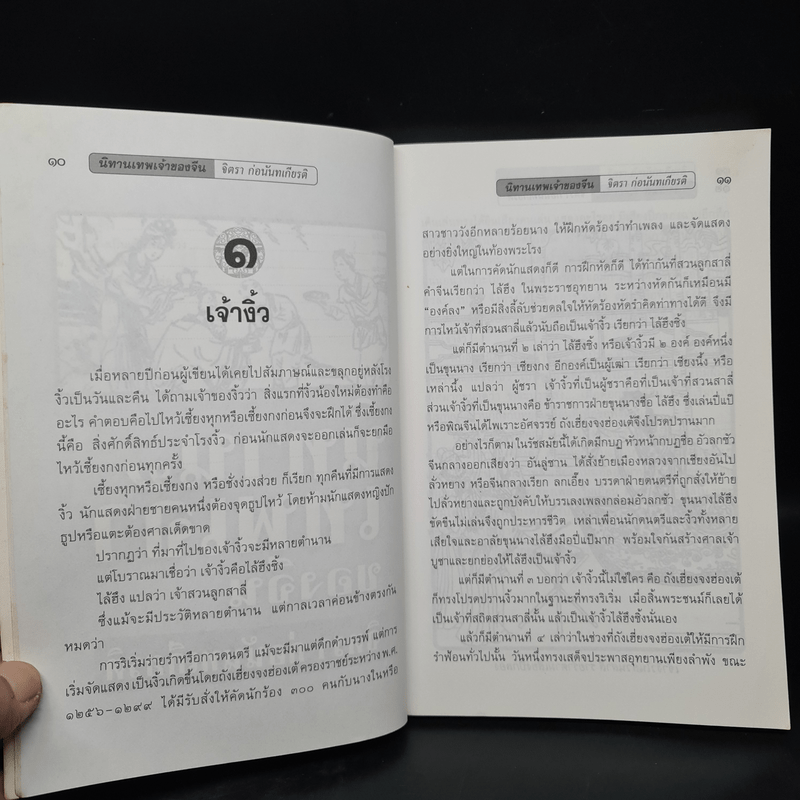 ๑๐
นิทานเทพเจ้าของจีน จิตรา ก่อนันทเกียรติ
๑
เจ้างิ้ว
เมื่อหลายปีก่อนผู้เขียนได้เคยไปสัมภาษณ์และขลุกอยู่หลังโรง
งิ้วเป็นวันและคืน ได้ถามเจ้าของงิ้วว่า สิ่งแรกที่งิ้วน้องใหม่ต้องทำคือ
อะไร คำตอบคือไปไหว้เซี้ยงหุกหรือเซี้ยงกงก่อนจึงจะฝึกได้ ซึ่งเซี้ยงกง
นี้คือ สิ่งศักดิ์สิทธิ์ประจำโรงงิ้ว ก่อนนักแสดงจะออกเล่นก็จะยกมือ
ไหว้เซี้ยงกงก่อนทุกครั้ง
เซี้ยงหุกหรือเซี้ยงกง หรือชั่งง่วงส่วย ก็เรียก ทุกคืนที่มีการแสดง
งิ้ว นักแสดงฝ่ายชายคนหนึ่งต้องจุดธูปไหว้ โดยห้ามนักแสดงหญิงปัก
ธูปหรือแตะต้องศาลเด็ดขาด
ปรากฏว่า ที่มาที่ไปของเจ้างิ้วจะมีหลายตำนาน
แต่โบราณมาเชื่อว่า เจ้างิ้วคือไล้ฮึงซิ้ง
ไล้ฮึง แปลว่า เจ้าสวนลูกสาลี่
ซึ่งแม้จะมีประวัติหลายตำนาน แต่กาลเวลาค่อนข้างตรงกัน
หมดว่า
การริเริ่มร่ายรำหรือการดนตรี แม้จะมีมาแต่ดึกดำบรรพ์ แต่การ
เริ่มจัดแสดงเป็นงิ้วเกิดขึ้นโดยถังเฮี่ยงจงฮ่องเต้ ครองราชย์ระหว่าง พ.ศ.
๑๒๕๖-๑๒๙๙ ได้มีรับสั่งให้คัดนักร้อง ๓๐๐ คนกับนางในหรือ
นิทานเทพเจ้าของจีน จิตรา ก่อนันทเกียรติ
๑๑
สาวชาววังอีกหลายร้อยนาง ให้ฝึกหัดร้องรำทำเพลง และจัดแสดง
อย่างยิ่งใหญ่ในท้องพระโรง
แต่ในการคัดนักแสดงก็ดี การฝึกหัดก็ดี ได้ทำกันที่สวนลูกสาลี่
คำจีนเรียกว่า ไล้ฮึง ในพระราชอุทยาน ระหว่างหัดกันก็เหมือนมี
“องค์ลง” หรือมีสิ่งลี้ลับช่วยดลใจให้หัดร้องหัดรำคิดท่าทางได้ดี จึงมี
การไหว้เจ้าที่สวนสาลี่แล้วนับถือเป็นเจ้างิ้ว เรียกว่า ไล้ฮึงซิ้ง
แต่ก็มีตำนานที่ ๒ เล่าว่า ไล้ฮึงซิ้ง หรือเจ้างิ้วมี ๒ องค์ องค์หนึ่ง
เป็นขุนนาง เรียกว่า เซียงกง อีกองค์เป็นผู้เฒ่า เรียกว่า เซียงนั้ง หรือ
เหล่านั้ง แปลว่า ผู้ชรา เจ้างิ้วที่เป็นผู้ชราคือที่เป็นเจ้าที่สวนสาลี่
ส่วนเจ้างิ้วที่เป็นขุนนางคือ ข้าราชการฝ่ายขุนนางชื่อ ไล้ฮึง ซึ่งเล่นปี่แป๊
หรือพิณจีนได้ไพเราะอัศจรรย์ ถังเฮี่ยงจงฮ่องเต้จึงโปรดปรานมาก
อย่างไรก็ตามในรัชสมัยนี้ได้เกิดมีกบฏ หัวหน้ากบฏชื่อ อัวลกซัว
จีนกลางออกเสียงว่า อันลู่ซาน ได้สั่งย้ายเมืองหลวงจากเซียงอันไป
ลั่วหยาง หรือจีนกลางเรียก ลกเอี๊ยง บรรดาฝ่ายดนตรีที่ถูกสั่งให้ย้าย
ไปลั่วหยางและถูกบังคับให้บรรเลงเพลงกล่อมอัวลกซัว ขุนนางไล้ฮึง
ขัดขืนไม่เล่นจึงถูกประหารชีวิต เหล่าเพื่อนนักดนตรีและงิ้วทั้งหลาย
เสียใจและอาลัยขุนนางไล้ฮึงมือปี่แป๊มาก พร้อมใจกันสร้างศาลเจ้า
บูชาและยกย่องให้ไล้ฮึงเป็นเจ้างิ้ว
แต่ก็มีตำนานที่ ๓ บอกว่า เจ้างิ้วนี้ไม่ใช่ใคร คือ ถังเฮี่ยงจงฮ่องเต้
ก็ทรงโปรดปรานงิ้วมากในฐานะที่ทรงริเริ่ม เมื่อสิ้นพระชนม์ก็เลยได้
เป็นเจ้าที่สถิตสวนสาลี่นั้น แล้วเป็นเจ้างิ้วไล้ฮึงซิ้งนั่นเอง
แล้วก็มีตำนานที่ ๔ เล่าว่าในช่วงที่ถังเฮี่ยงจงฮ่องเต้ให้มีการฝึก
รำฟ้อนทั่วไปนั้น วันหนึ่งทรงเสด็จประพาสอุทยานเพียงลำพัง ขณะ